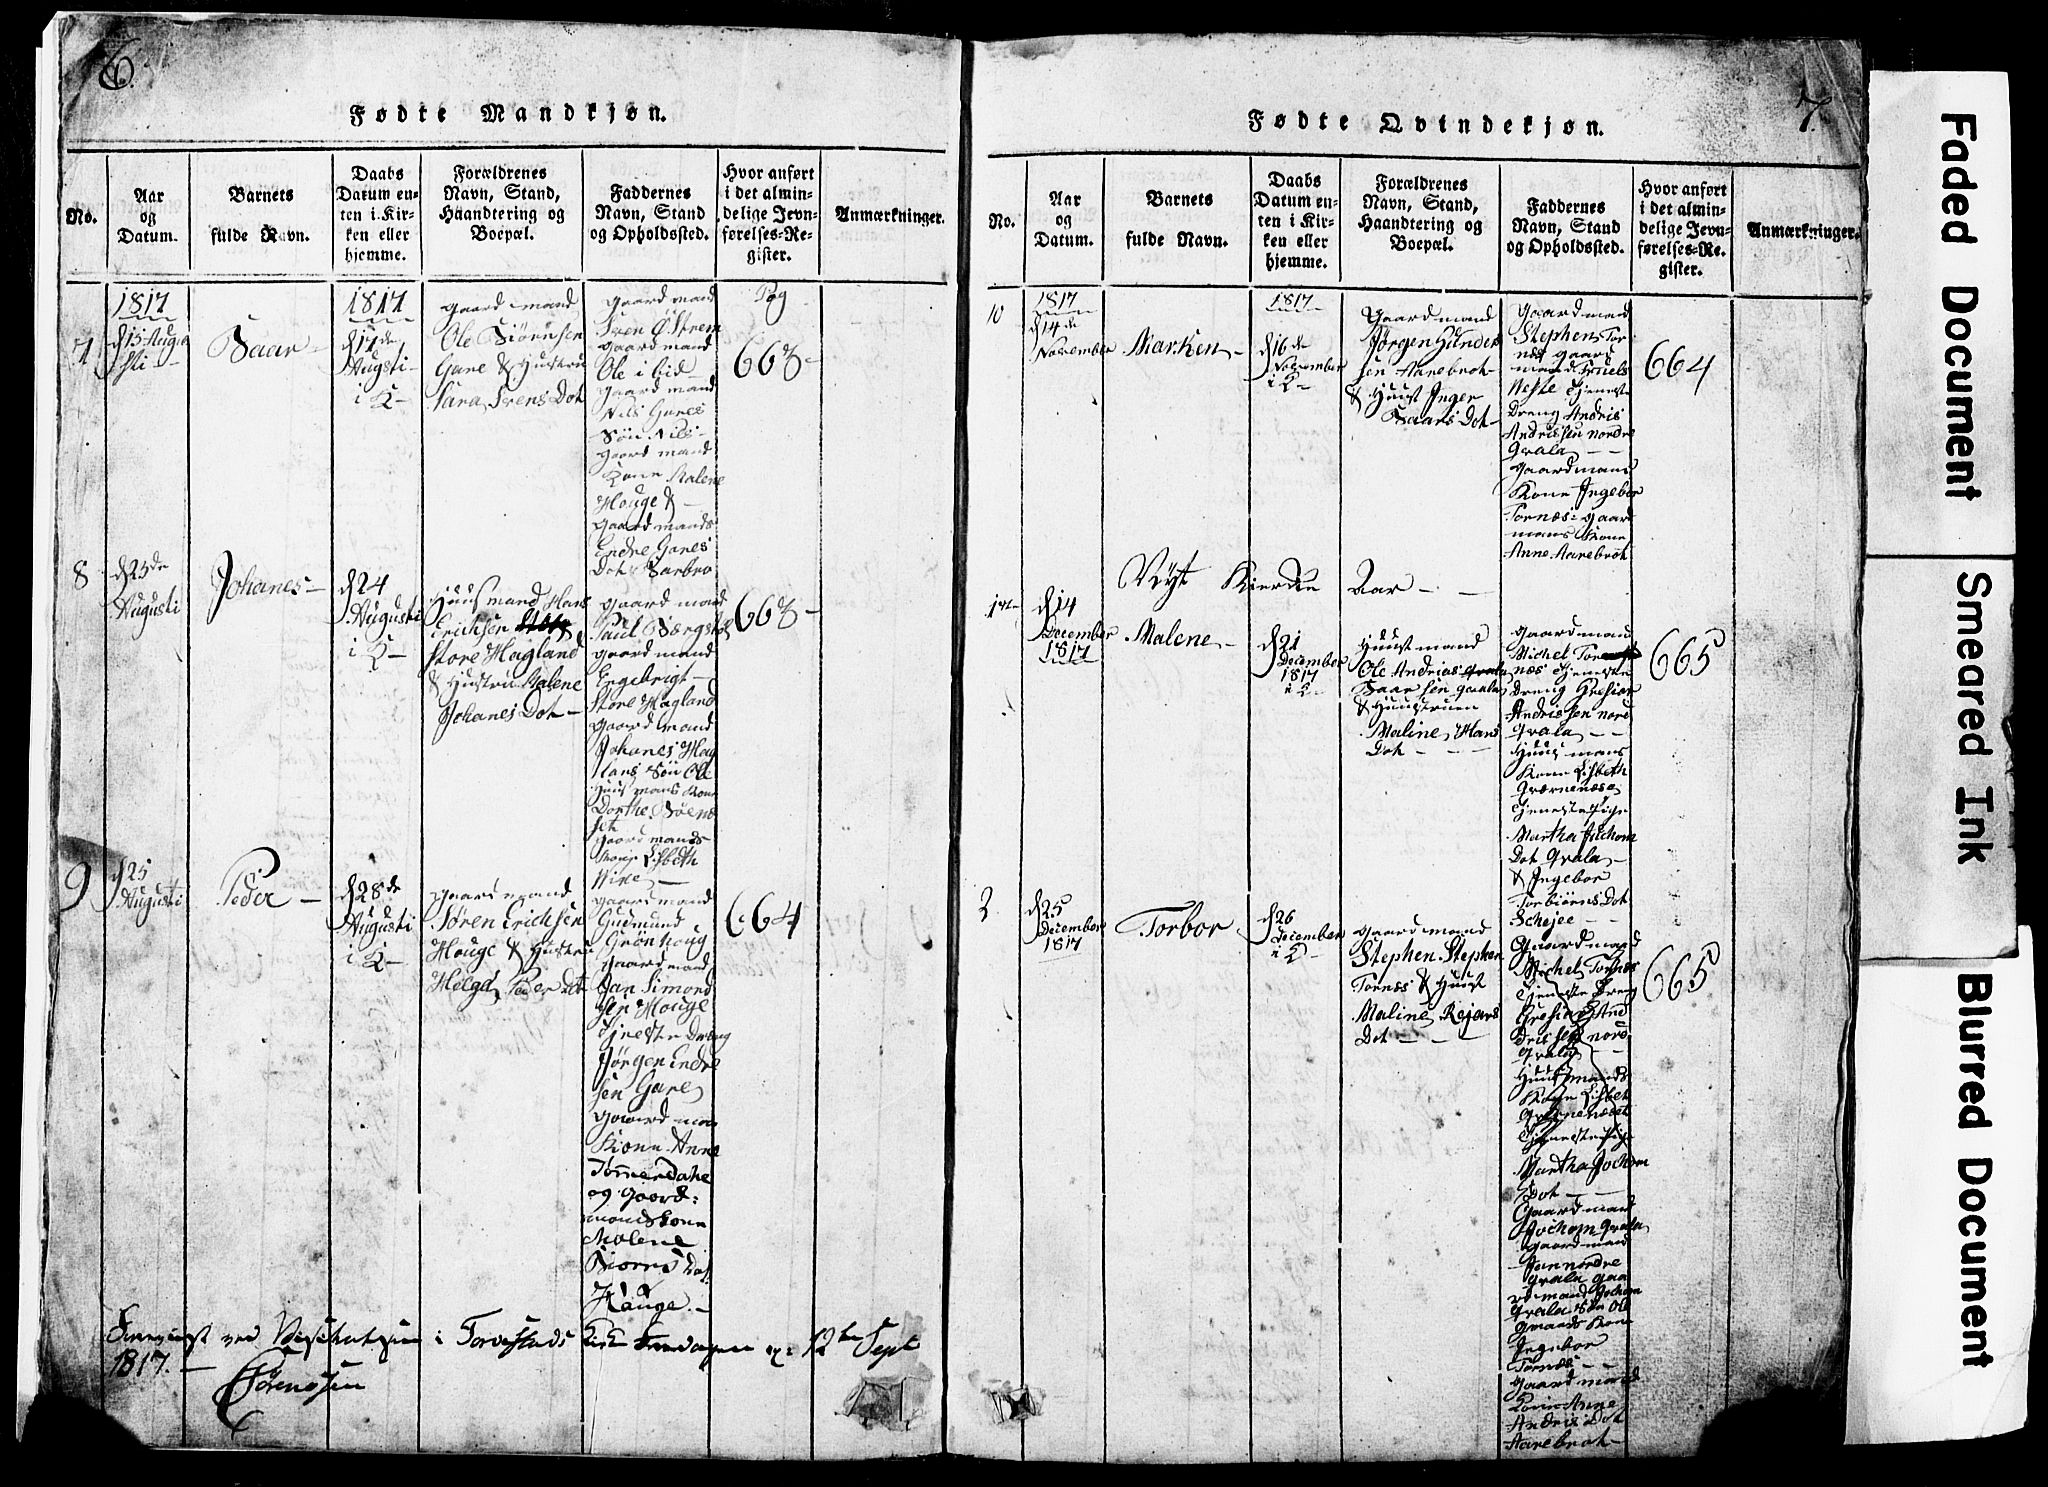 6.
Fødte Mandkjøn.
No.
Aar
og
Datum.
Barnets
fulde Navn.
Daabs
Datum en-
ten i Kir-
ken eller
hjemme.
Forældrenes
Navn, Stand,
Haandtering og
Boepæl.
Faddernes
Navn, Stand
og Opholdssted.
Hvor anført
i det almin-
delige Jevn-
førelses-Re-
gister.
Anmærkninger.
7
1817
d 15 Augu
sti
Baar
1817
d 17de
Augusti
i K
gaard mand
Ole Biørnsen
Gare & Hustru
Sara Ivens Dot
gaard mand
Iven Østrem
gaard mand
Ole i bid
gaard mand
Nils Gares
Søn Nils
gaard mand
Kone Malene
Houge &
gaard mands
Endre Gares
Dot Barbro
Pag
663
8
d 25de
Augusti
Johanes
d 24
Augusti
i K
Huusmand Hans
Erichsen
Store Hagland
& Hustru Malene
Johanes Dot
gaard mand
Paul
gaard mand
Engebrigt
Store Hagland
gaard mand
Johanes Hag
lans Søn Ole
Huusmans Kone
Dorthe
gaard mands
Lisbeth
663
9
d 25
Augusti
Peder
d 28de
Augusti
i K
gaard mand
Søren Erichsen
Houge & Hustru
Helga Peder Dot
gaard mand
Gudmund
Grønhoug
gaard mand
Jan Simond
sen Houge
Dreng
Jørgen Endre
sen Gare
gaard man
Kone Anne
Tømerdahl
og Gaord-
mands kone
Malene
Biørns Dat
Hauge.
664
ved Visitatsen i Torvestads Kirke 12te Sept
1817.
Sørenssen
7.
Fødte Qvindekjøn.
No.
Aar
og
Datum.
Barnets
fulde Navn.
Daabs
Datum en-
ten i Kir-
ken eller
hjemme.
Forældrenes
Navn, Stand,
Haandtering og
Boepæl.
Faddernes
Navn, Stand
og Opholdssted.
Hvor anført
i det almin-
delige Jevn-
førelses-Re-
gister.
Anmærkninger.
10
1817
d 14de
November
Marken
1817
d 16de
November
i K
gaard mand
Jørgen Gunder
sen Aarebrot
& Huust Inger
Baars Dot
gaard mand
Stephen Tor
næs gaard
mand Truels
Neste tjeneste
Dreng Andris
Andrissen nordre
Qvala
gaardmans
Kone Ingebor
Tornæs gaard
mans Kone
Anne Aarebrot
664
Nyt Kierke Aar
d 14
December
1817
Malene
d 21
December
1817
i K
Huust mand
Ole Andrias Qvala
Baarsen Qvala
& Huustruen
Maline Hans
Dot
gaard mand
Michel Tor
næs tjeneste
Dreng Gresiar
Andrissen nord
Qvala
Huus mans
Kone Lisbeth
tjeneste Pige
Martha Juchom
Dot Qvala
& Ingebor
Torbiørns Dot
665
2
d 25
December
1817
Torbor
d 26
December
i K
gaard mand
Stephen Stephen
Tornæs & Huust
Maline Rejers
Dot
Gaard mand
Michel Tornæs
tjeneste Dreng
Gresiar And
drissen nord
Qvala
Huusmands
Kone Lisbet
tjeneste Pige
Martha Jochom
Dot
Gaard mand
Jochom Qvala
gaard mand
Jan nordre
Qvala gaa
rd mand Jochom
Qvala Søn Ole
gaards Kone
Ingebor
Tornæs
gaard mand
Kone Anne
Andris Dot
Aarebrot
665
Faded Document
Smeared Ink
Blurred Document